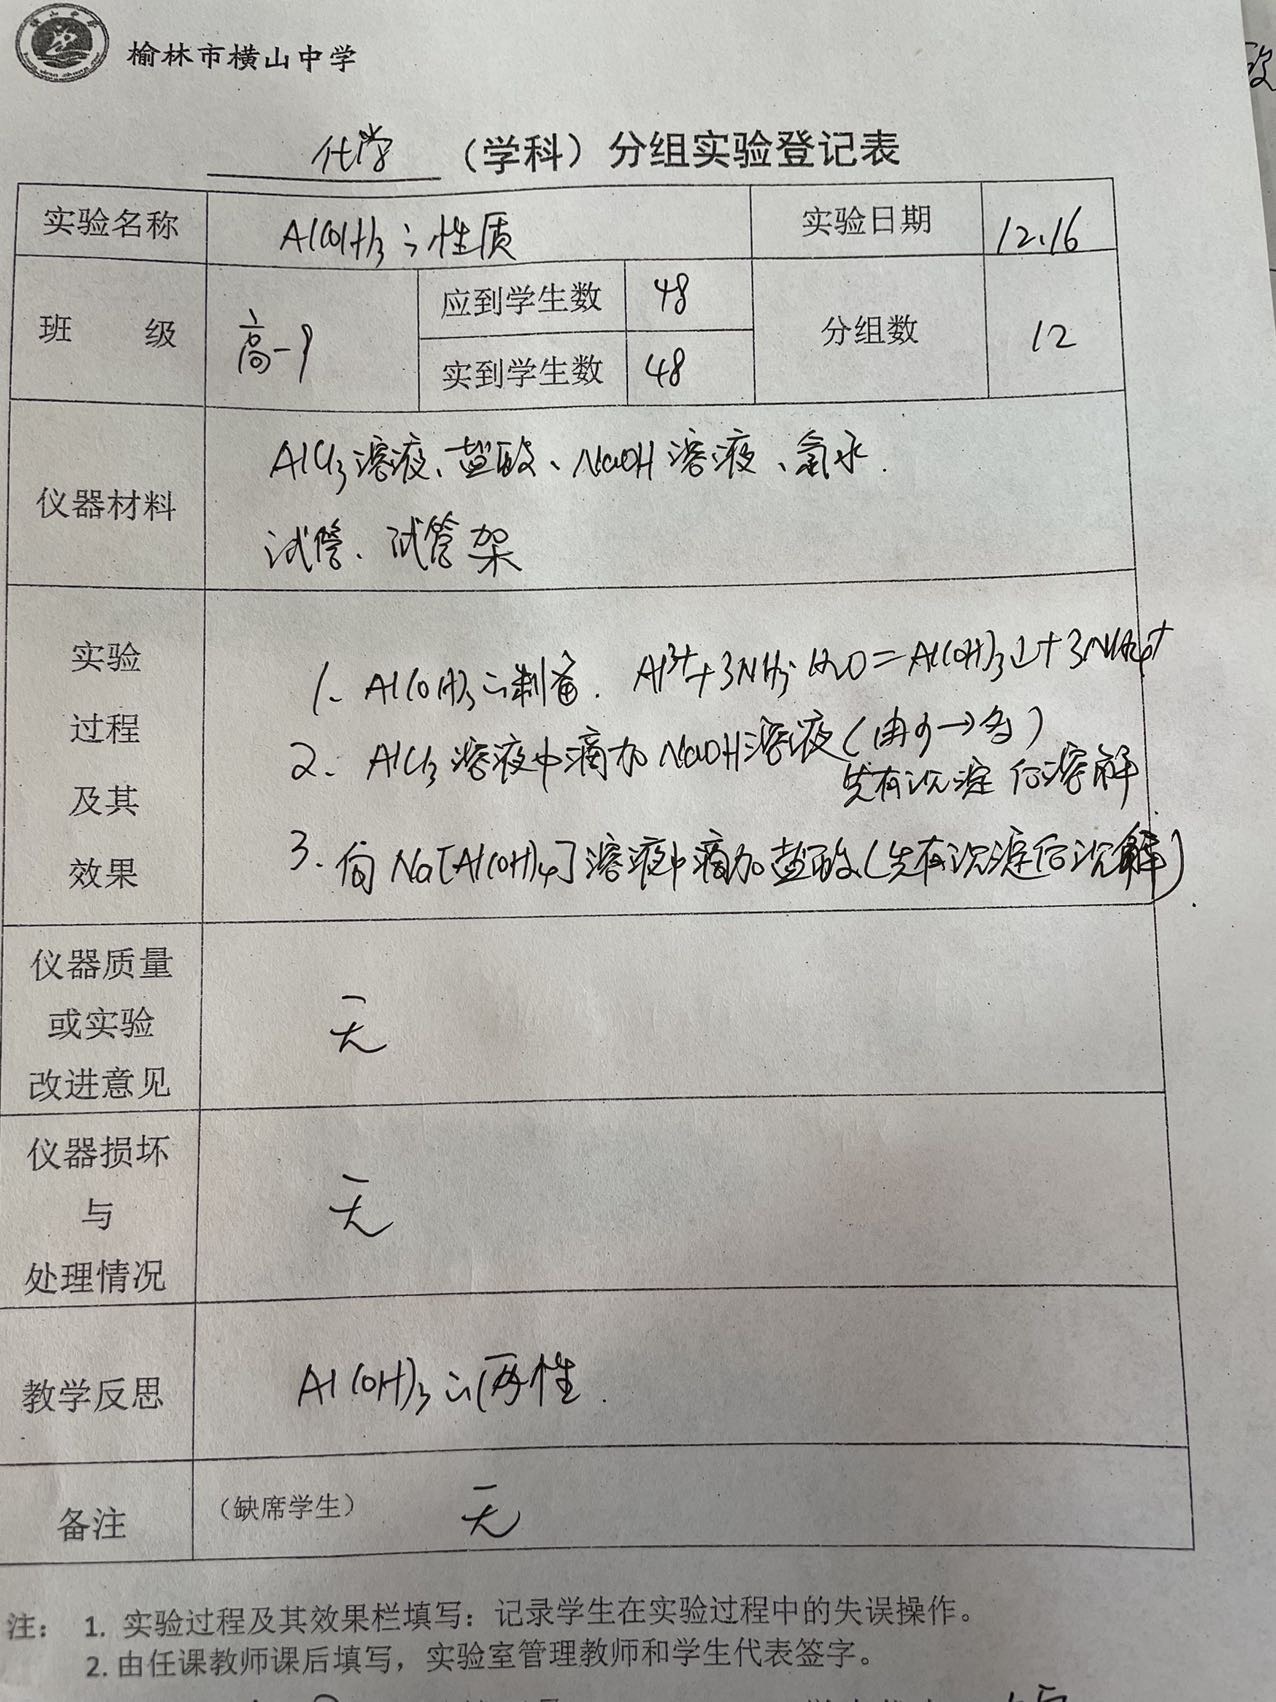 榆林市横山中学
化学（学科）分组实验登记表
实验名称 Al(OH)3的性质 实验日期 12.16
班 级 高一9 应到学生数 48 分组数 12
实到学生数 48
仪器材料 AlCl3溶液、盐酸、NaOH溶液、氨水.
试管、试管架
实验
过程
及其
效果
1、Al(OH)3的制备. Al3++3NH3·H2O=Al(OH)3↓+3NH4+
2、AlCl3溶液中滴加NaOH溶液(由少→多)
先有沉淀后溶解
3.向Na[Al(OH)4]溶液中滴加盐酸(先有沉淀后沉解)
仪器质量
或实验
改进意见
无
仪器损坏
与
处理情况
无
教学反思 Al(OH)3的两性.
备注 （缺席学生） 无
注： 1. 实验过程及其效果栏填写：记录学生在实验过程中的失误操作。
2. 由任课教师课后填写，实验室管理教师和学生代表签字。